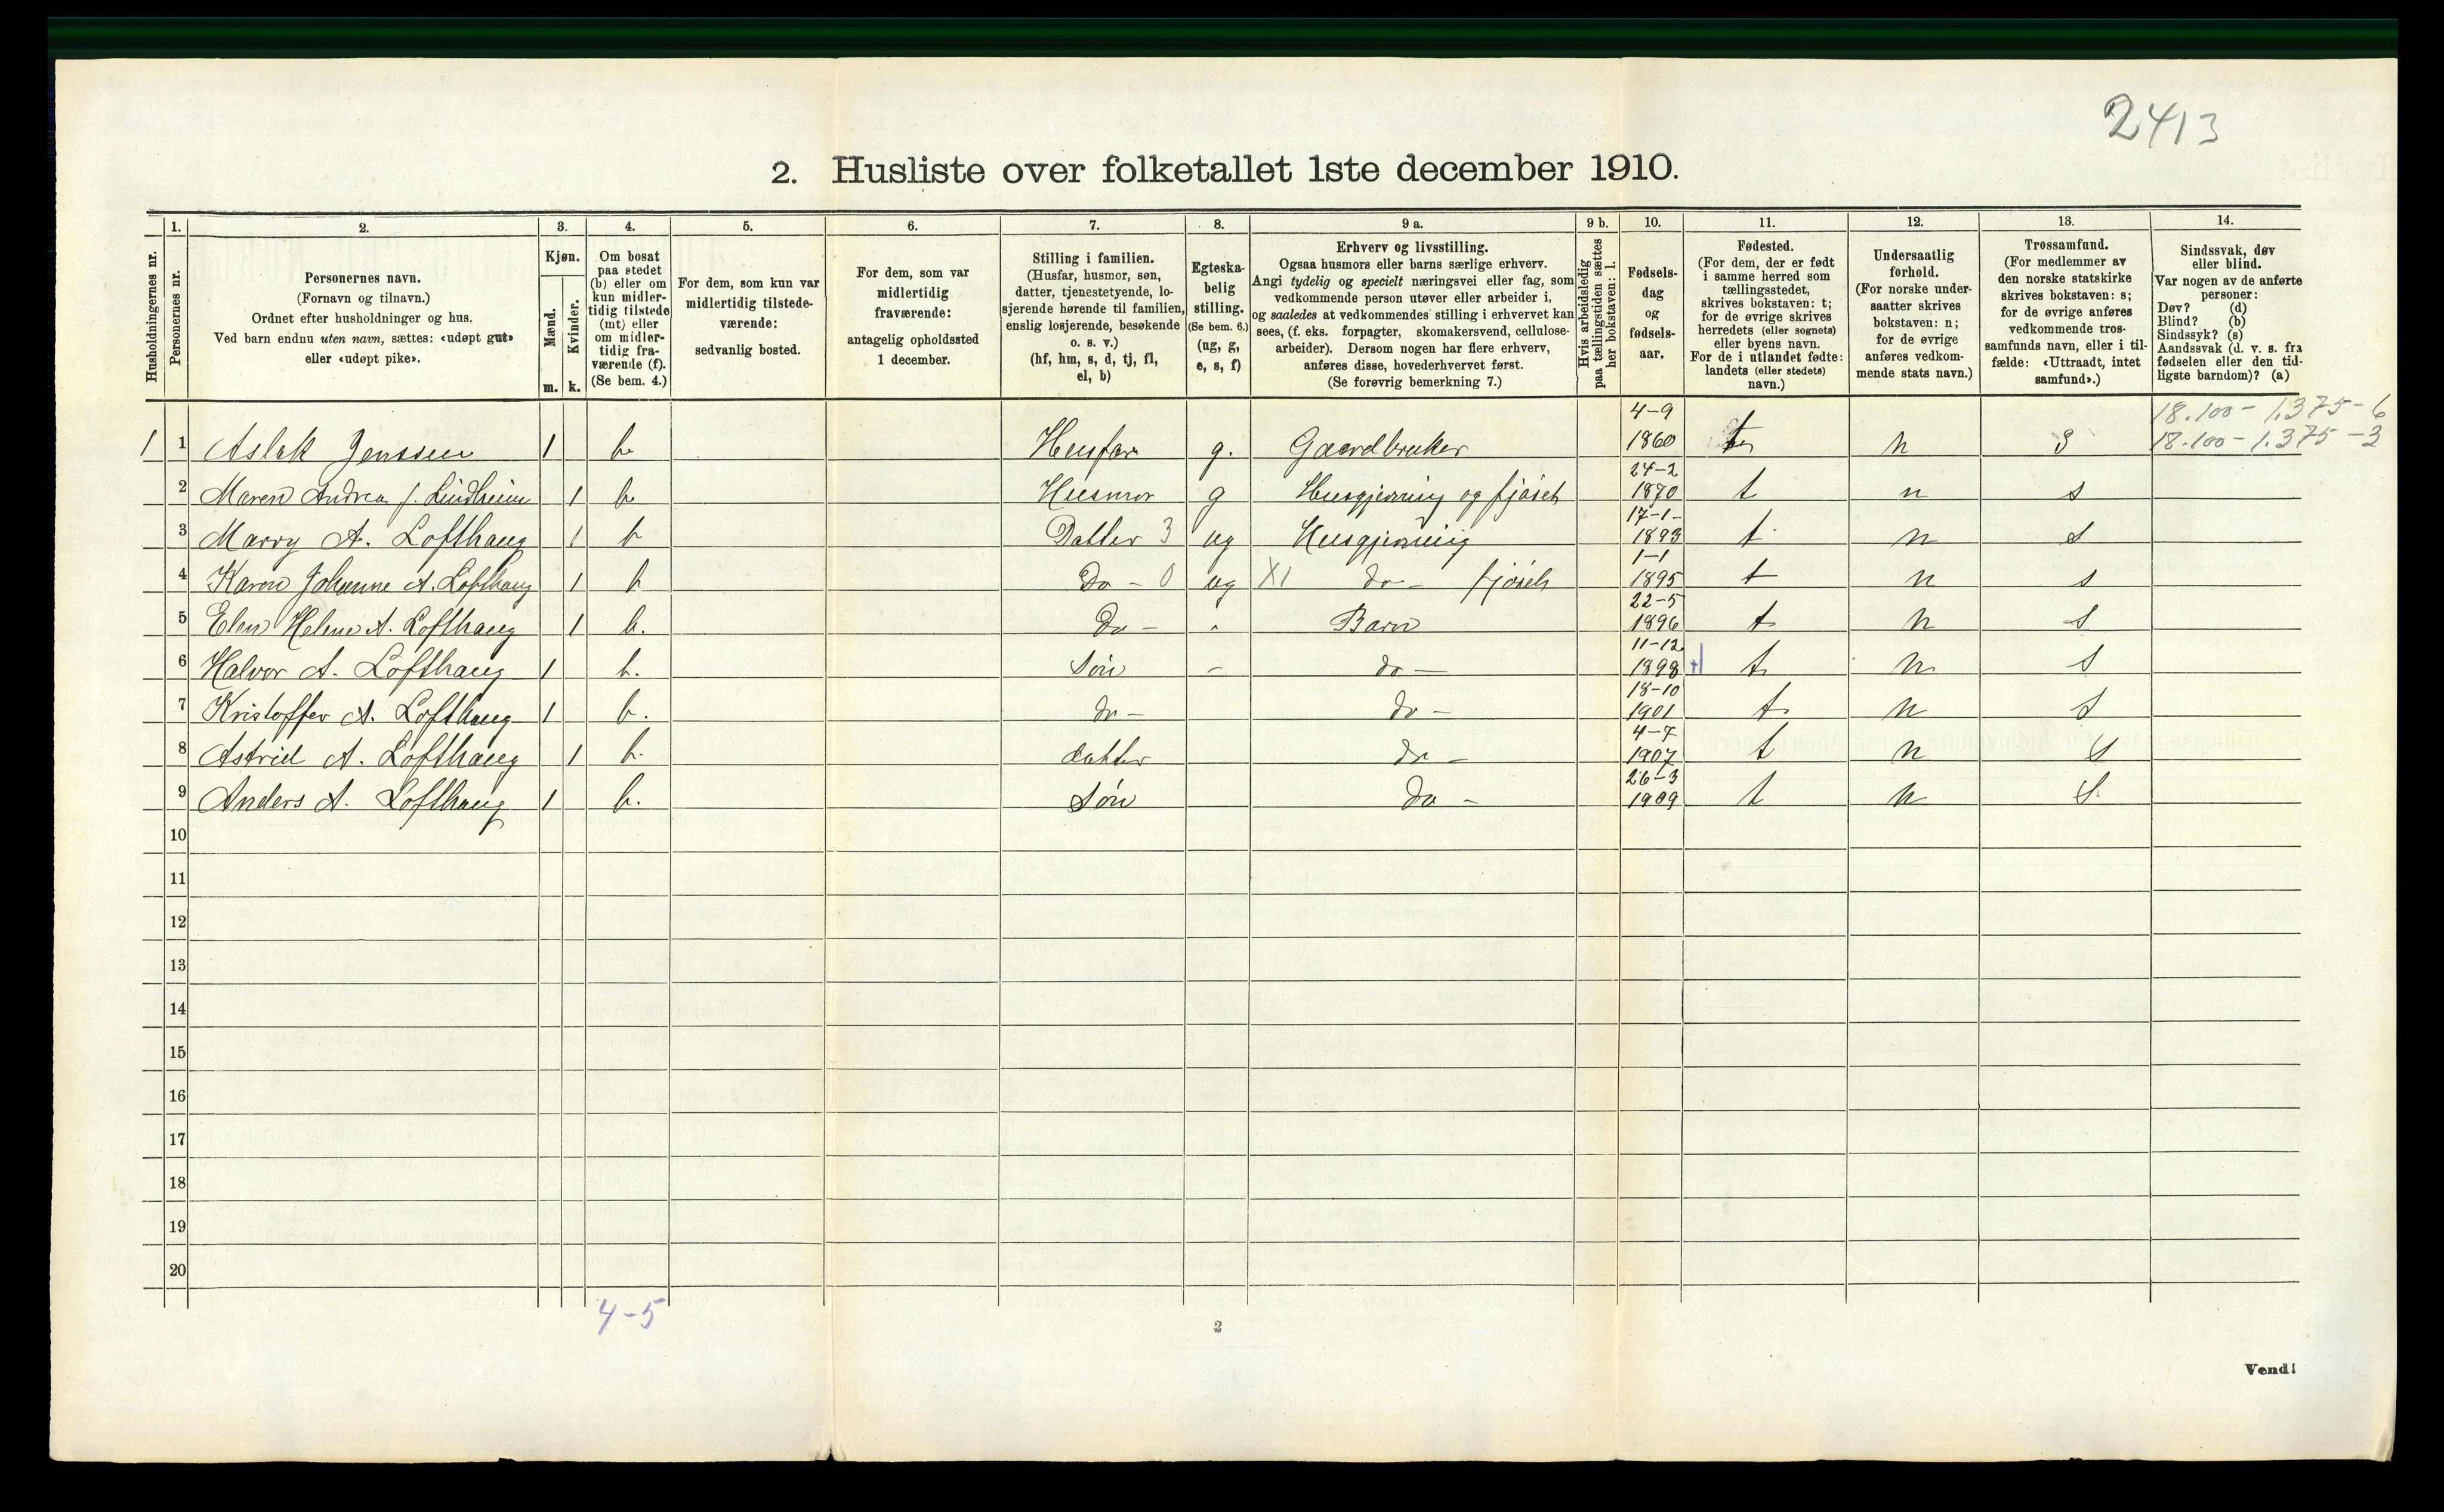 2413
2. Husliste over folketallet 1ste december 1910.
Husholdningernes nr.
1. Personernes nr.
2. Personernes navn.
(Fornavn og tilnavn.)
Ordnet efter husholdninger og hus.
Ved barn endnu uten navn, sættes: «udøpt gut»
eller «udøpt pike».
3. Kjøn.
Mænd. m.
Kvinder. k.
4. Om bosat
paa stedet
(b) eller om
kun midler-
tidig tilstede
(mt) eller
om midler-
tidig fra-
værende (f).
(Se bem. 4.)
5. For dem, som kun var
midlertidig tilstede-
værende:
sedvanlig bosted.
6. For dem, som var
midlertidig
fraværende:
antagelig opholdssted
1 december.
7. Stilling i familien.
(Husfar, husmor, søn,
datter, tjenestetyende, lo-
sjerende hørende til familien,
enslig losjerende, besøkende
o. s. v.)
(hf, hm, s, d, tj, fl,
el, b)
8. Egteska-
belig
stilling.
(Se bem. 6.)
(ug, g,
e, s, f)
9 a. Erhverv og livsstilling.
Ogsaa husmors eller barns særlige erhverv.
Angi tydelig og specielt næringsvei eller fag, som
vedkommende person utøver eller arbeider i,
og saaledes at vedkommendes stilling i erhvervet kan
sees, (f. eks. forpagter, skomakersvend, cellulose-
arbeider). Dersom nogen har flere erhverv,
anføres disse, hovederhvervet først.
(Se forøvrig bemerkning 7.)
9 b. Hvis arbeidsledig
paa tællingstiden sættes
her bokstaven: l.
10. Fødsels-
dag
og
fødsels-
aar.
11. Fødested.
(For dem, der er født
i samme herred som
tællingsstedet,
skrives bokstaven: t;
for de øvrige skrives
herredets (eller sognets)
eller byens navn.
For de i utlandet fødte:
landets (eller stedets)
navn.)
12. Undersaatlig
forhold.
(For norske under-
saatter skrives
bokstaven: n;
for de øvrige
anføres vedkom-
mende stats navn.)
13. Trossamfund.
(For medlemmer av
den norske statskirke
skrives bokstaven: s;
for de øvrige anføres
vedkommende tros-
samfunds navn, eller i til-
fælde: «Uttraadt, intet
samfund».)
14. Sindssvak, døv
eller blind.
Var nogen av de anførte
personer:
Døv? (d)
Blind? (b)
Sindssyk? (s)
Aandssvak (d. v. s. fra
fødselen eller den tid-
ligste barndom)? (a)
18.100 - 1.375 - 6
1 1 Aslak Jenssen 1 b Husfar g. Gaardbruker 4-9 1860 t n S 18.100 - 1.375 - 3
2 Maren Andrea f. Lindheim 1 b Husmor g Husgjerning og fjöset 24-2 1870 t n s
3 Marry A. Lofthaug 1 b Datter 3 ug Husgjerning 17-1- 1893 t n s
4 Karen Johanne A. Lofthaug 1 b Do - 0 ug X1 do - fjöset 1-1 1895 t n s
5 Elen Helene A. Lofthaug 1 b. Do - " Barn 22-5 1896 t n s
6 Halvor A. Lofthaug 1 b. Sön - do - 11-12 1898 t n s
7 Kristoffer A. Lofthaug 1 b. do - do - 18-10 1901 t n s
8 Astrid A. Lofthaug 1 b. datter do - 4-7 1907 t n s
9 Anders A. Lofthaug 1 b. Sön do - 26-3 1909 t n s
10
11
12
13
14
15
16
17
18
19
20
4-5
2
Vend!